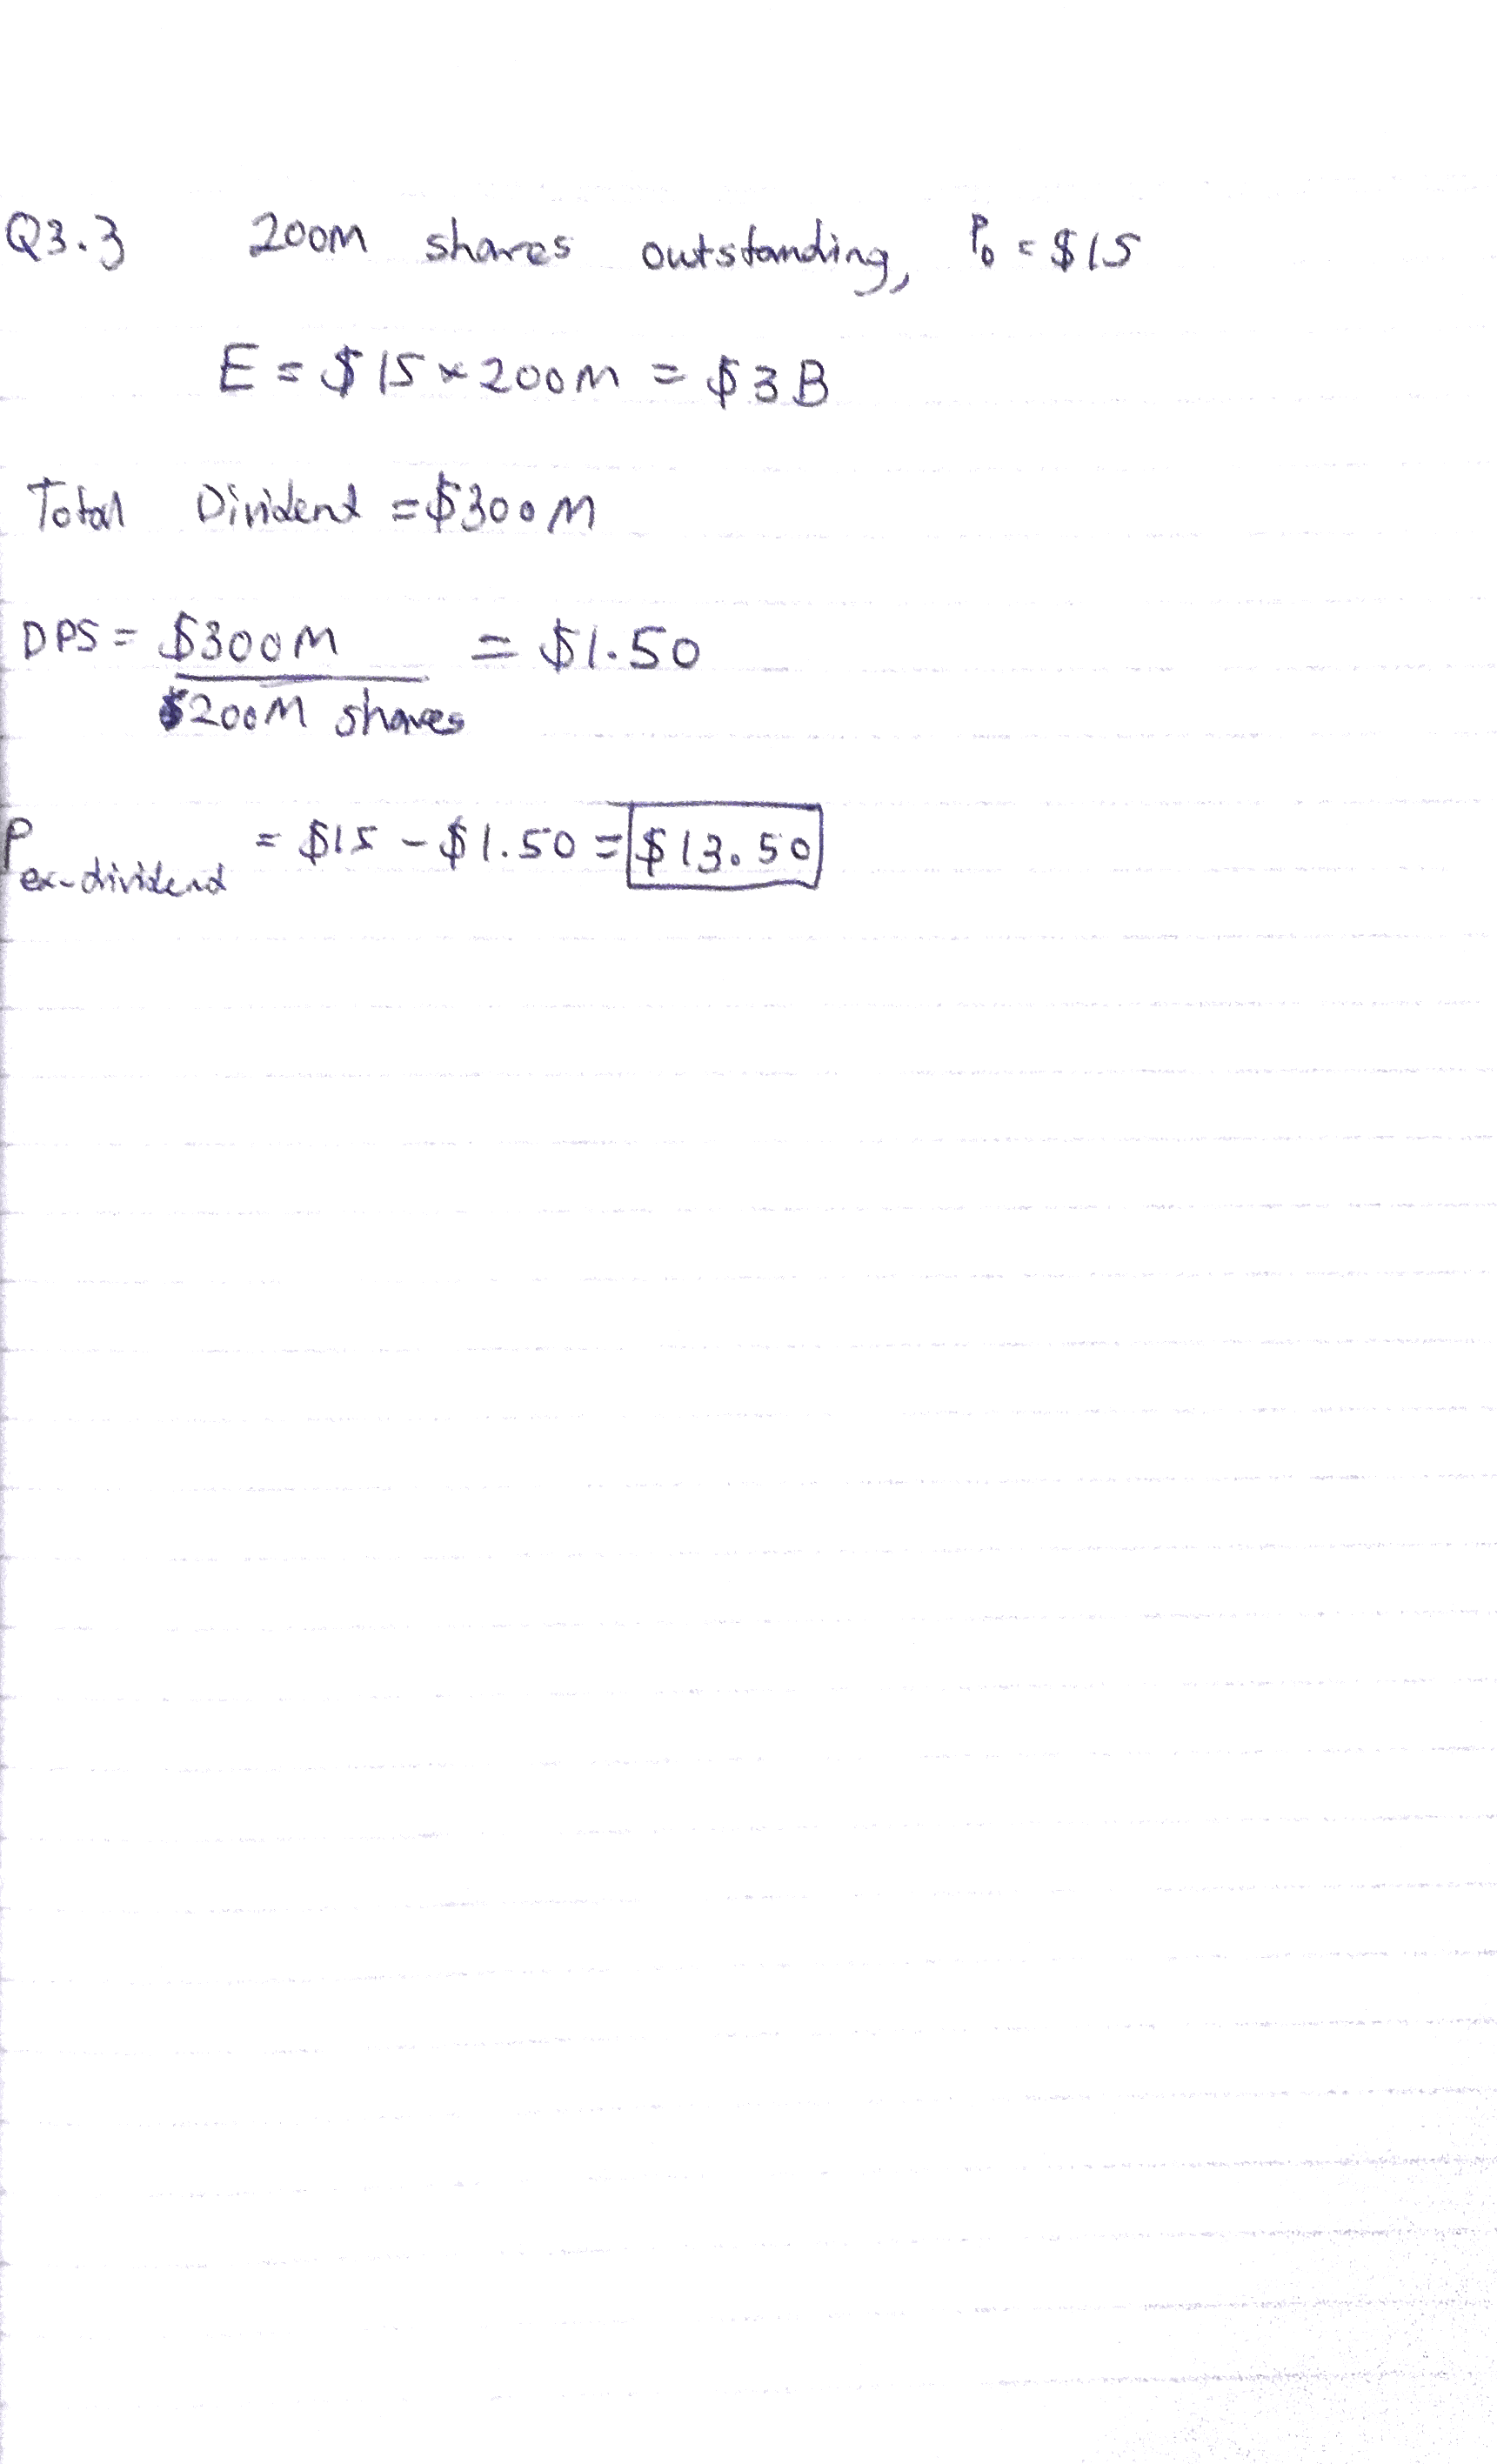 Q3.3 200M shares outstanding, P₀ = $15
E = $15 × 200M = $3B
Total Divident = $300M
DPS = $300M / $200M shares = $1.50
P ex-dividend = $15 - $1.50 = $13.50